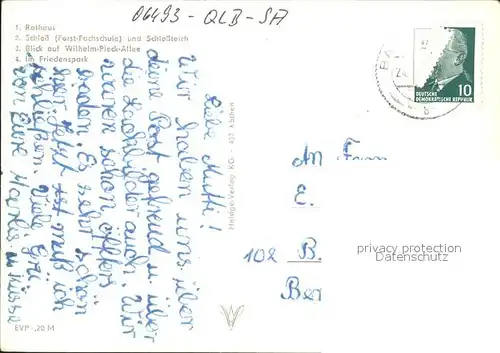 06493-QLB-SA
1. Rathaus
2. Schloß (Forst-Fachschule) und Schloßteich
3. Blick auf Wilhelm-Pieck-Allee
4. Im Friedenspark
Liebe Mutti!
Wir haben uns über
deine Post gefreud u. über
die Lichtbilder auch. Wir
waren schon öfters
baden. Es sehr schön
hier. Jetzt ist muß ich
schließen. Viele Grü
von Eure u. Küsse
Heldge-Verlag KG · 437 Köthen
EVP -,20 M
DEUTSCHE
DEMOKRATISCHE REPUBLIK
10
An
E.
102 B.
Ber
privacy protection
Datenschutz